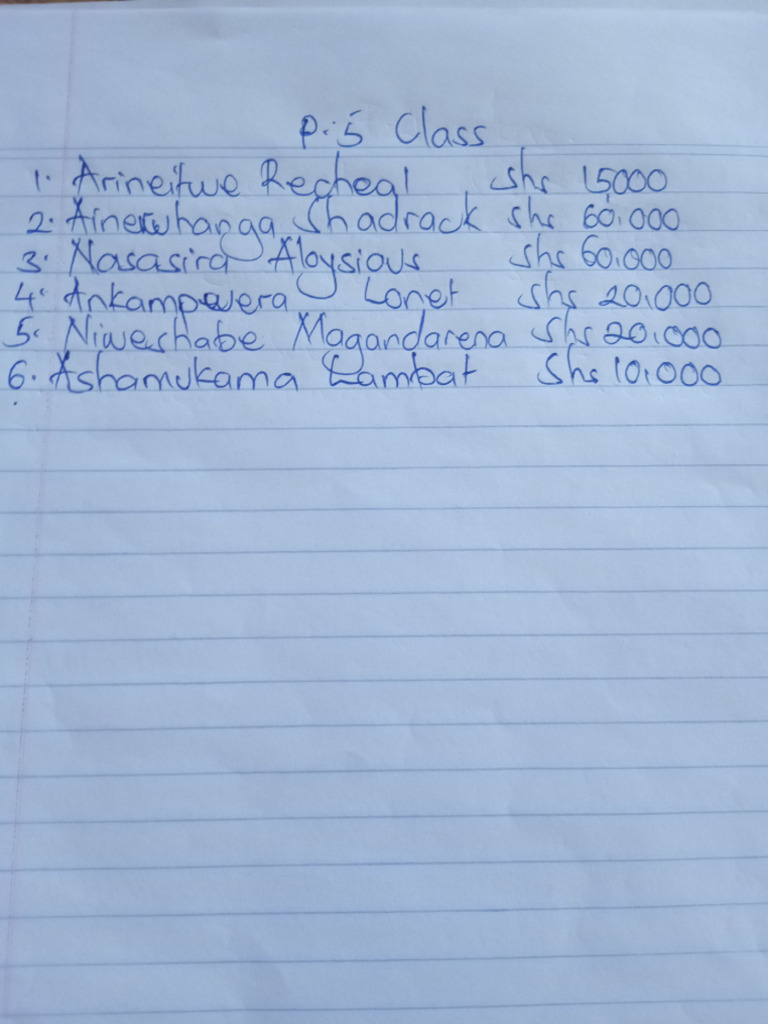 P.5 Class
1. Arineitwe Recheal Shs 15000
2. Ainerwhanga Shadrack Shs 60.000
3. Nasasira Aloysious Shs 60.000
4. Ankampwera Lonet Shs 20.000
5. Niweshabe Magandarena Shs 20.000
6. Ashamukama Lambat Shs 10.000